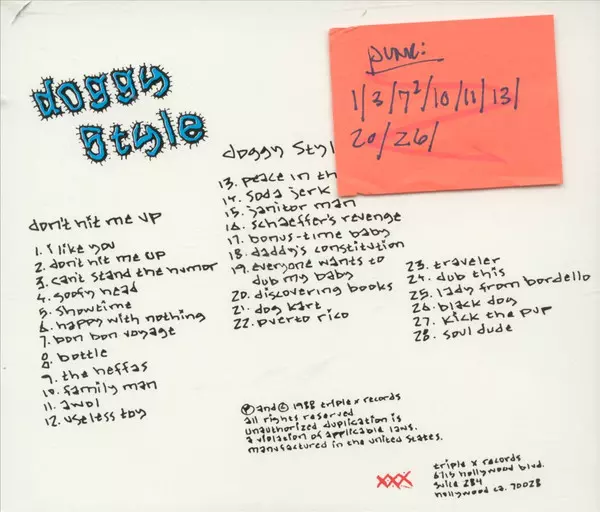 doggy
style
punk:
1/3/7²/10/11/13/
20/26/
don't hit me up
1. i like you
2. don't hit me up
3. can't stand the humor
4. goofy head
5. showtime
6. happy with nothing
7. bon bon voyage
8. bottle
9. the heffas
10. family man
11. awol
12. useless toy
doggy Styl
13. peace in th
14. soda jerk
15. janitor man
16. schaeffer's revenge
17. bonus-time baby
18. daddy's constitution
19. everyone wants to
dub my baby
20. discovering books
21. dog kart
22. puerto rico
23. traveler
24. dub this
25. lady from bordello
26. black dog
27. kick the pup
28. soul dude
℗ and © 1988 triple x records
all rights reserved
unauthorized duplication is
a violation of applicable laws.
manufactured in the united states.
xxx
triple x records
6715 hollywood blvd.
suite 284
hollywood ca. 90028